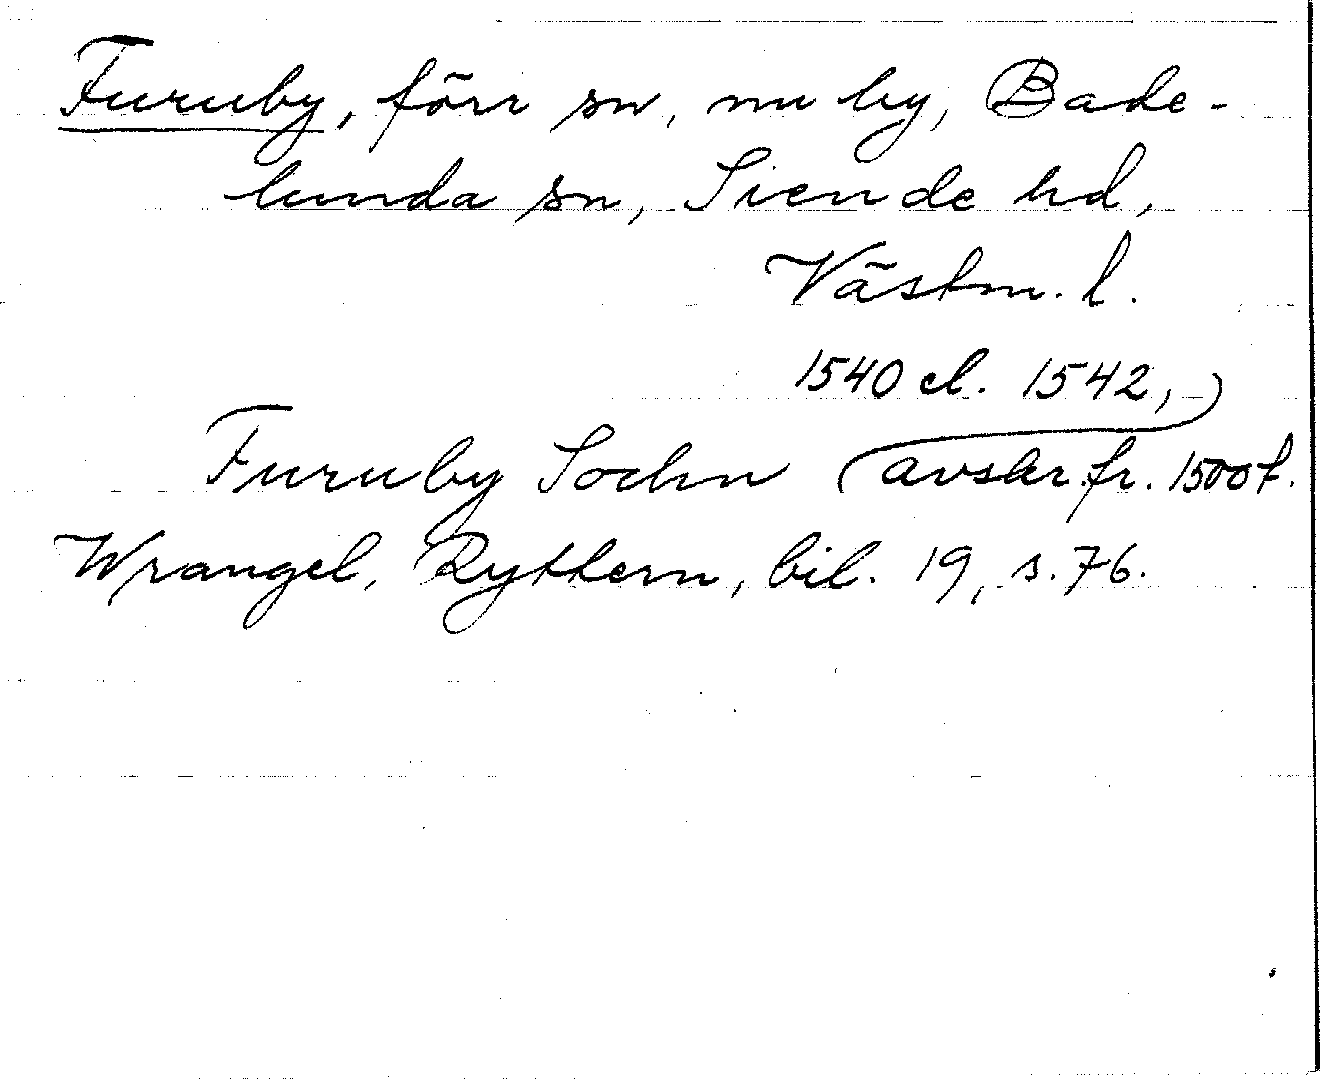 Furuby, förr sn, nu by, Bade-
lunda sn, Siende hd,
Västm. l.
1540 el. 1542,
Furuby Sochn (avskr. fr. 1500t.)
Wrangel, Rytkern, bil. 19, s. 76.